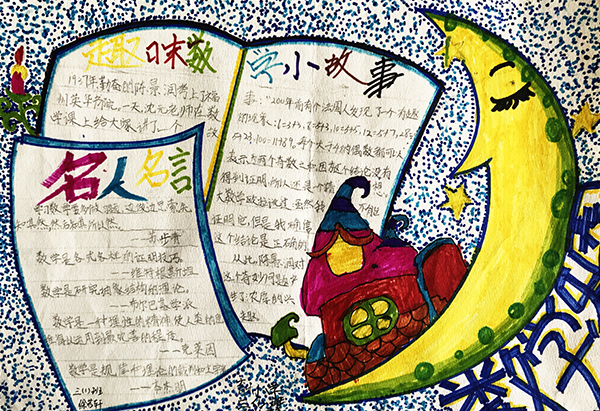 趣味数学小故事
1937年勤奋的陈景润考上了福
州英华书院,一天,沈元老师在数
学课上给大家讲了
事:"200年前有个法国人发现了一个有趣
的现象:6=3+3,8=5+3,10=5+5,12=5+7,28=
5+23,100=11+89。每个大于4的偶数都可以
表示为两个奇数之和。因为这个结论没有
得到证明,所以还是一个猜想。
大数学欧拉说过:虽然我不能
证明它,但是我确信
这个结论是正确的
从此,陈景润对
这个奇妙问题产
生了浓厚的兴
趣。
名人名言
学习数学要多做习题,边做边思索。先
知其然,然后知其所以然。
——苏步青
数学是各式各样的证明技巧
——维特根斯坦
数学是研究抽象结构的理论。
——布尔巴基学派
数学是一种理性的精神,使人类的思
维得以运用到最完善的程度
——克莱因
数学是规律和理论的裁判和主宰者
——本杰明
三(1)班